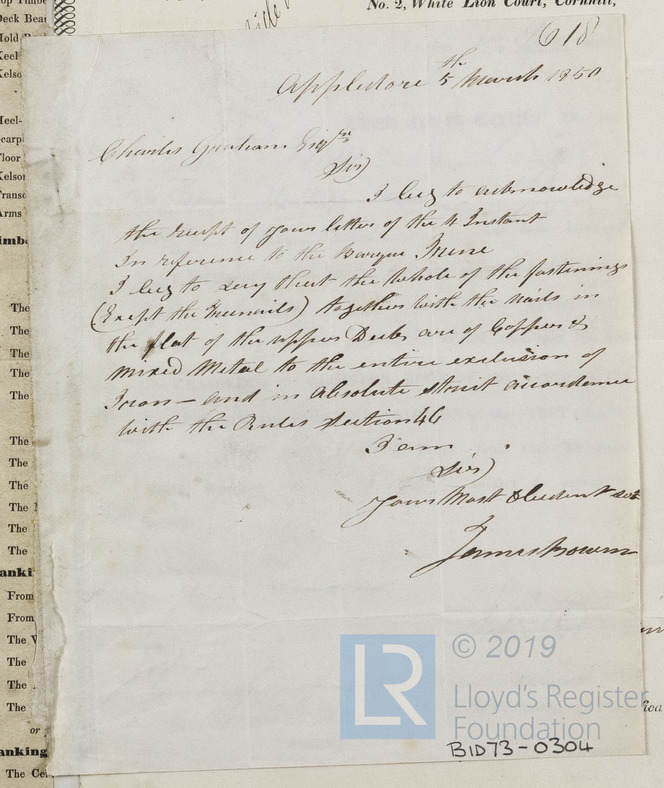 No. 2, White Lion Court, Cornhill,
618
Appledore 5th March 1850
Charles Graham Esqre
Sir
I beg to acknowledge
the receipt of your letter of the 4 Instant
In reference to the Barque
I beg to say that the whole of the fastenings
(Exept the Treenails) together with the nails in
the flat of the upper Decks are of Copper &
mixed Metal to the entire exclusion of
Iron - and in absolute strict accordance
with the Rules Section 46
I am
Sir
Yours Most Obedient Sert
James Bowen
Deck Bea
Hold B
Keel
Kelso
Heel-
carp
Floor
Kelson
Transo
Arms
imb
The
The
The
The
The
The
The
The
The
The
The
The
anki
From
From
The W
The
The
The
or
anking
The Cei
LR
© 2019
Lloyd's Register
Foundation
BID73-0304